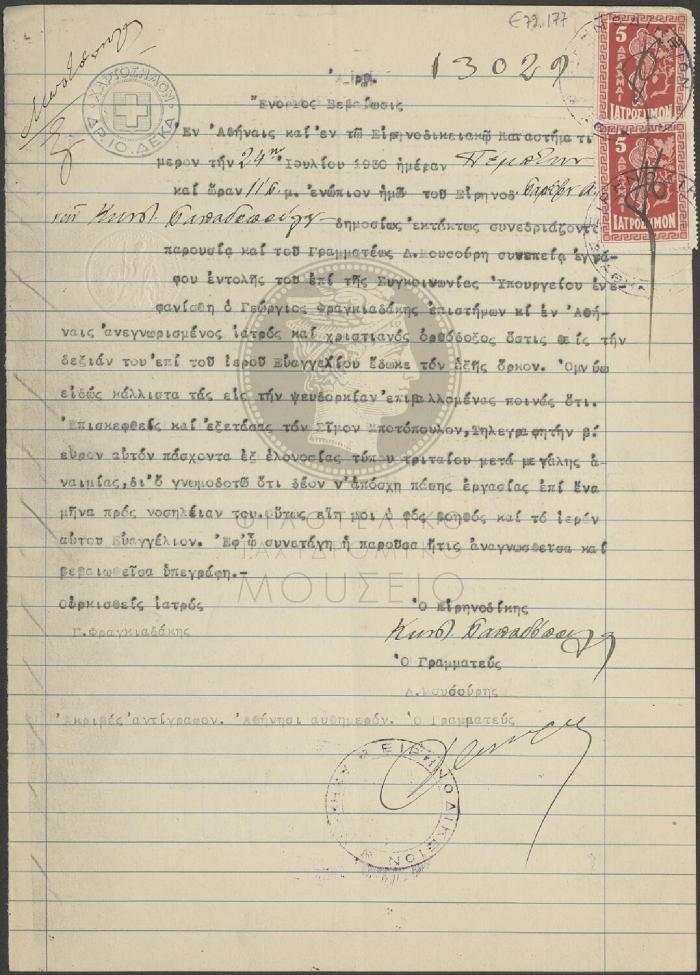 Ε72.177
Ἀριθ. 13029
5
ΔΡΑΧΜΑΙ
ΙΑΤΡΟΣΗΜΟΝ
5
ΔΡΑΧΜΑΙ
ΙΑΤΡΟΣΗΜΟΝ
ΧΑΡΤΟΣΗΜΟΝ
ΔΡ. 10. ΔΕΚΑ
Ἔνορκος Βεβαίωσις
Ἐν Ἀθήναις καί ἐν τῷ Εἰρηνοδικειακῷ Καταστήματι
μερον τήν 24ην Ἰουλίου 1930 ἡμέραν Πέμπτην
καί ὥραν 11 π.μ. ἐνώπιον ἡμῶν τοῦ Εἰρηνοδ.
Κωνστ. Παπαδοπούλου δημοσίως ἐκτάκτως συνεδριάζοντο
παρουσίᾳ καί τοῦ Γραμματέως Δ.Μουσούρη συνεπείᾳ ἐγγρά-
φου ἐντολῆς τοῦ ἐπί τῆς Συγκοινωνίας Ὑπουργείου ἐνε
φανίσθη ὁ Γεώργιος Φραγκιαδάκης ἐπιστήμων κι ἐν Ἀθή-
ναις ἀνεγνωρισμένος ἰατρός καί χριστιανός ὀρθόδοξος ὅστις θείς τήν
δεξιάν του ἐπί τοῦ ἱεροῦ Εὐαγγελίου ἔδωκε τόν ἑξῆς ὅρκον. Ὀμνύω
εἰδώς κάλλιστα τάς εἰς τήν ψευδορκίαν ἐπιβαλλομένας ποινάς ὅτι.
Ἐπισκεφθείς καί ἐξετάσας τόν Σῖμον Μποτόπουλον, Τηλεγραφητήν βʹ
εὗρον αὐτόν πάσχοντα ἐξ ἑλονοσίας τύπου τριταίου μετά μεγάλης ἀ
ναιμίας, δι' ὅ γνωμοδοτῶ ὅτι δέον ν' ἀπόσχῃ πάσης ἐργασίας ἐπί ἕνα
μῆνα πρός νοσηλείαν του. Οὕτως εἴη μοι ὁ Θεός βοηθός καί τό ἱερόν
αὐτοῦ Εὐαγγέλιον. Ἐφ' ᾧ συνετάγη ἡ παροῦσα ἥτις ἀναγνωσθεῖσα καί
βεβαιωθεῖσα ὑπεγράφη.-
Ὁ ὁρκισθείς ἰατρός Ὁ Εἰρηνοδίκης
Γ.Φραγκιαδάκης Κωνστ. Παπαδόπουλος
Ὁ Γραμματεύς
Δ.Μουσούρης
Ἀκριβές ἀντίγραφον. Ἀθήνησι αὐθημερόν. Ὁ Γραμματεύς
ΕΙΡΗΝΟΔΙΚΕΙΟΝ ΑΘΗΝΩΝ
ΦΙΛΟΤΕΛΙΚΟ
ΤΑΧΥΔΡΟΜΙΚΟ
ΜΟΥΣΕΙΟ